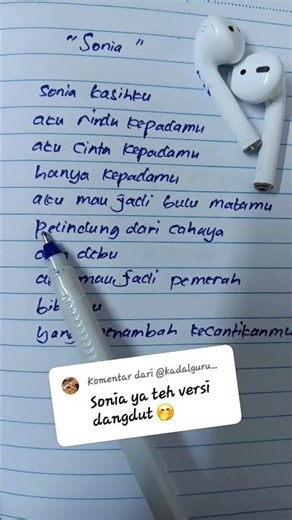 "Sonia"
Sonia kasihku
aku rindu kepadamu
aku cinta kepadamu
hanya kepadamu
aku mau jadi bulu matamu
pelindung dari cahaya
debu
mau jadi pemerah
yang menambah kecantikanmu
Komentar dari @kadalguru...
Sonia ya teh versi
dangdut 🤭